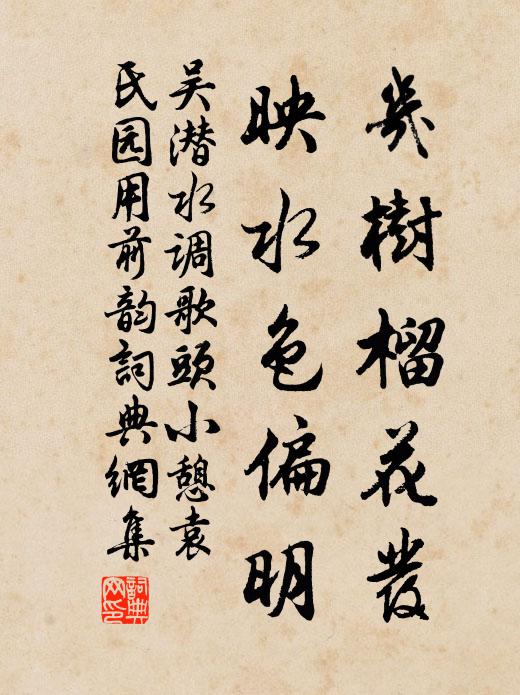 幾樹榴花發
映水色偏明
吴潜水调歌頭小憩袁
氏园用前韵詞典網集
詞典网印